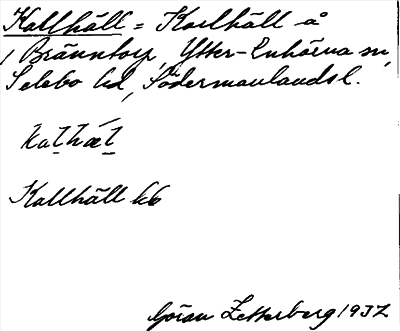 Kallhäll = Karlhäll å
Bränntorp, Ytter-Enhörna sn,
Selebo hd, Södermanlands l.
kal̲hæ̀l̲
Kallhäll kb
Göran Zetterberg 1932